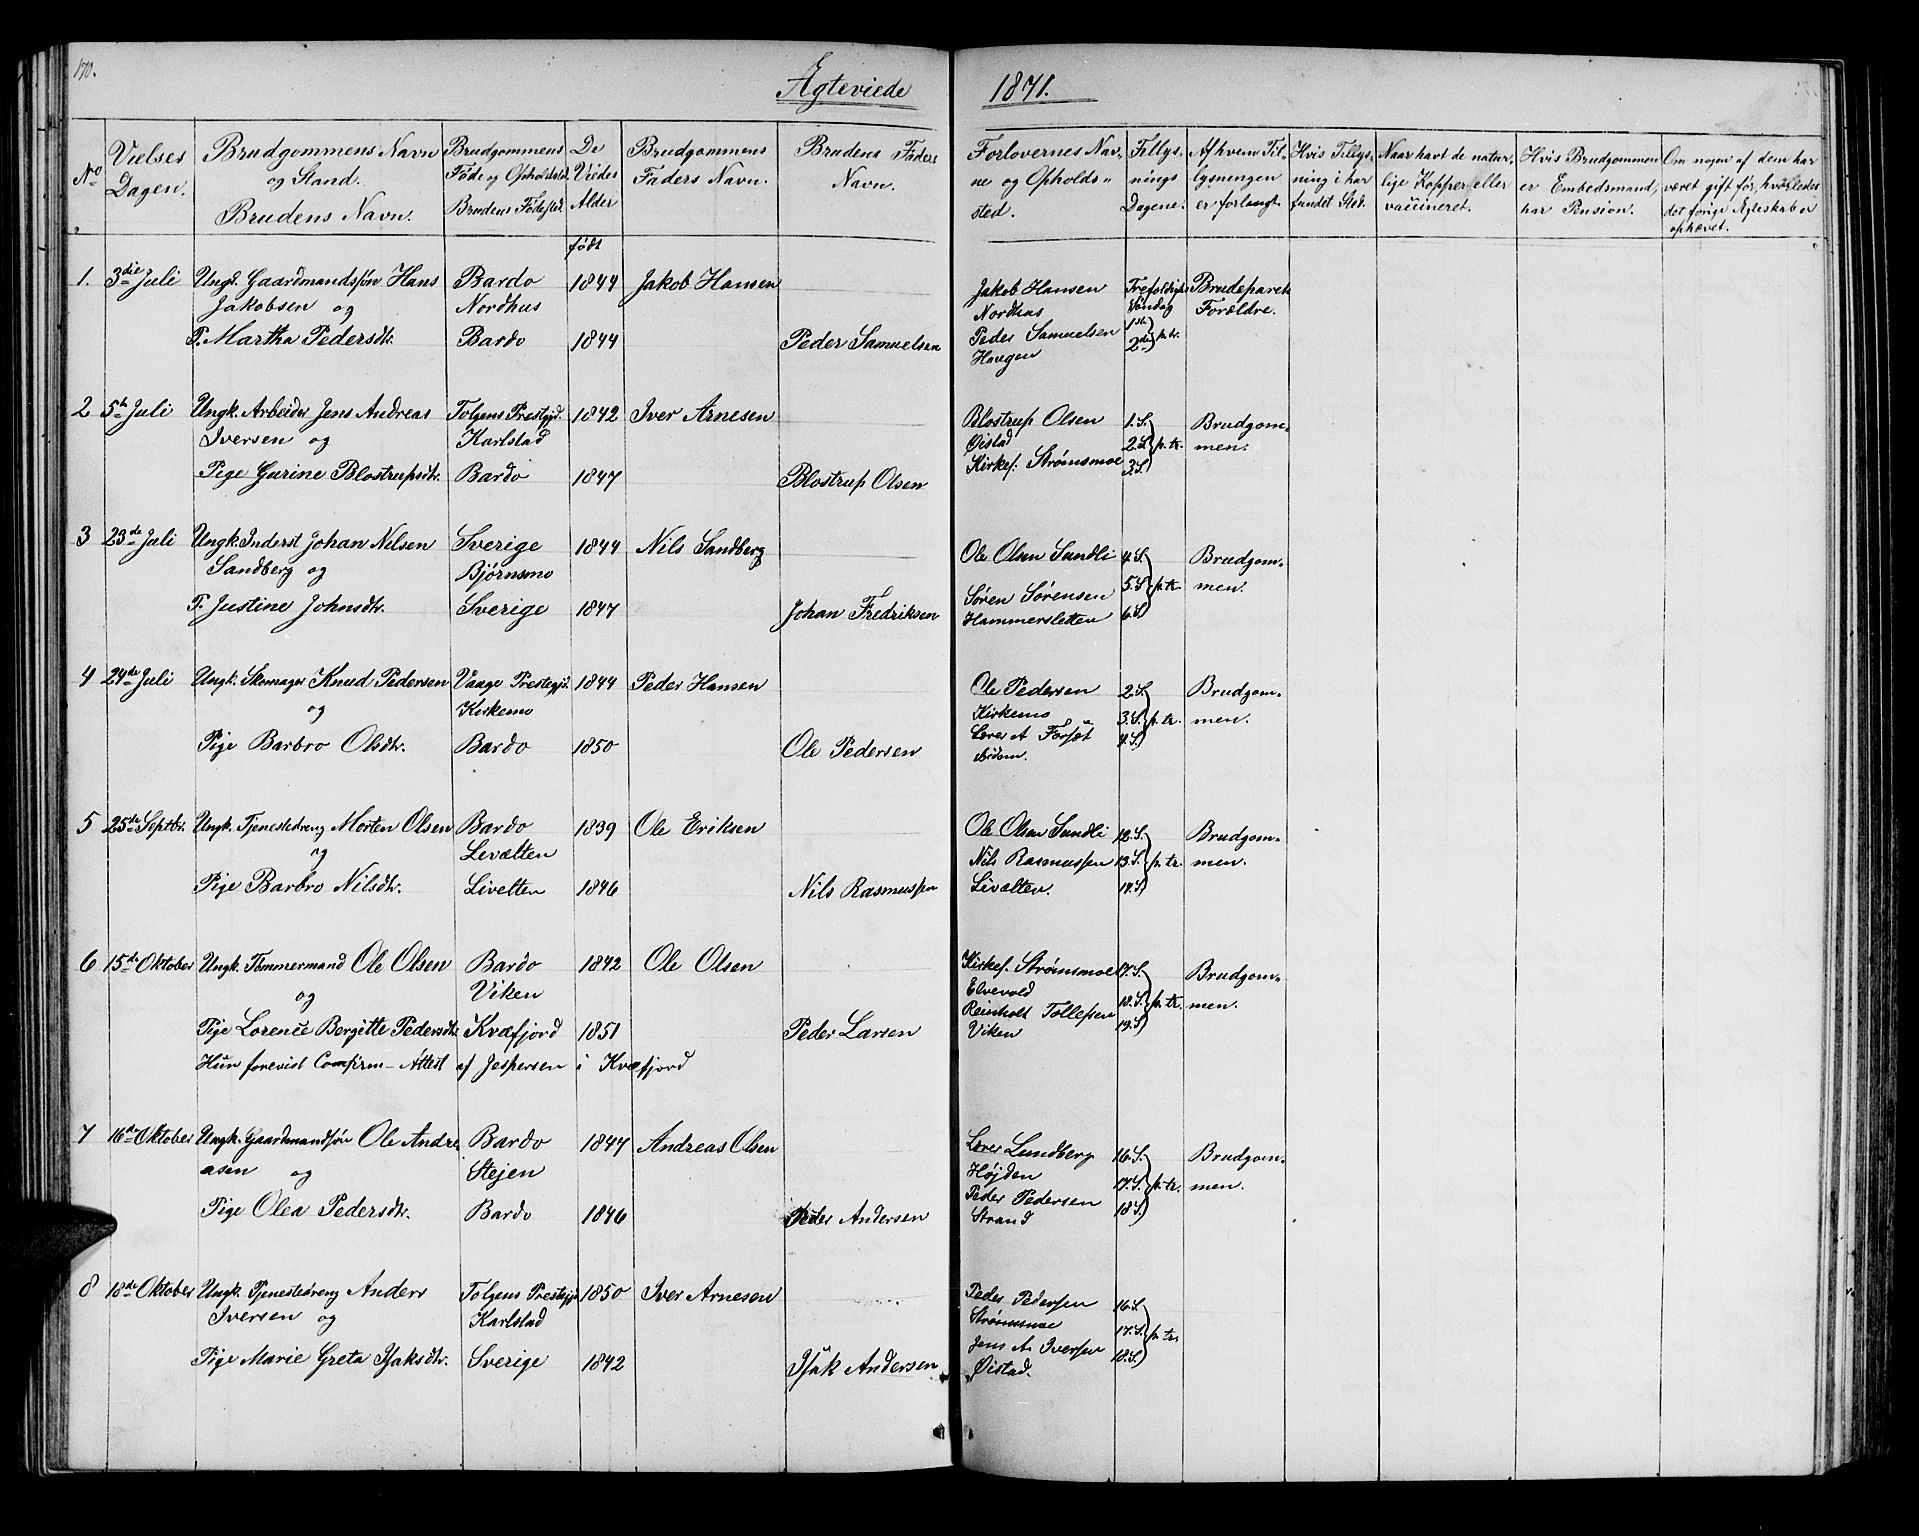 170.
Ægteviede 1871.
No
Vielses Dagen.
Brudgommens Navn og Stand.
Brudens Navn.
Brudgommens Føde og Opholdsted.
Brudens Fødested.
De Viedes Alder
født
Brudgommens Faders Navn.
Brudens Faders Navn.
Forlovernes Navne og Opholdssted.
Tillysnings Dagene.
Af hvem Tillysningen er forlangt.
Hvis Tillysning i har fundet Sted.
Naar havt de naturlige Kopper eller vaccineret.
Hvis Brudgommen er Embedsmand, har Pension.
Om nogen af dem har været gift før, hvorledes det forrige Ægteskab er ophævet.
1. 3die Juli Ungk. Gaardmandssøn Hans Bardo 1844 Jakob Hansen Jakob Hansen Trefoldigh. Brudeparets
Jakobsen og Nordhus Nordhus Søndag Forældre.
P. Martha Pedersdtr. Bardo 1844 Peder Samuelsen Peder Samuelsen 1ste
Haugen 2den p. tr.
2 5te Juli Ungk. Arbeider Jens Andreas Tolgens Prestgjd. 1842 Iver Arnesen Blostrup Olsen 1. S. Brudgom-
Iversen og Karlstad Øistad 2. S. p. tr. men.
Pige Gurine Blostrupsdtr. Bardo 1847 Blostrup Olsen Kirkes. Strømsmoe 3. S.
3 23de Juli Ungk. Inderst Johan Nilsen Sverige 1844 Nils Sandberg Ole Olsen Sundli 4. S. Brudgom-
Sandberg og Bjørnsmo 5. S. p. tr. men.
P. Justine Johnsdtr. Sverige 1847 Johan Fredriksen Søren Sørensen
Hammersletten 6. S.
4 24de Juli Ungk. Skomager Knud Pedersen Vaage Prestegjd. 1844 Peder Hansen Ole Pedersen 2. S. Brudgom-
og Kirkemo Kirkemo 3. S. p. tr. men.
Pige Barbro Olsdtr. Bardo 1850 Ole Pedersen 4. S.
ibidem.
5 25de Septbr. Ungk. Tjenestedreng Morten Olsen Bardo 1839 Ole Eriksen Ole Olsen Sundli 12. S. Brudgom-
og Levælten Nils Rasmussen 13. S. p. tr. men.
Pige Barbro Nilsdtr. Livelten 1846 Nils Rasmussen Livælten. 14. S.
6 15de Oktober Ungk. Tømmermand Ole Olsen Bardo 1842 Ole Olsen Kirkes. Strømsmoe 17. S. Brudgom-
og Viken Elvevold 18. S. p. tr. men.
Pige Lorence Bergitte Pedersdtr. Kvæfjord 1851 Peder Larsen Reinholt Tollefsen
Viken 19. S.
Hun forevist Confirm-Attest af Jespersen i Kvæfjord
7 16de Oktober Ungk. Gaardmandssøn Ole Andre Bardo 1847 Andreas Olsen Lars Lundberg 16. S. Brudgom-
asen og Stejen Højden 17. S. p. tr. men.
Pige Olea Pedersdtr. Bardo 1846 Peder Andersen Peder Pedersen
Strand 18. S.
8 18de Oktober Ungk. Tjenestedreng Anders Tolgens Prestegjd. 1850 Iver Arnesen Peder Pedersen 16. S.
Iversen og Karlstad Strømsmoe 17. S. p. tr.
Pige Marie Greta Isaksdtr. Sverige 1842 Isak Andersen Jens A. Iversen 18. S.
Øistad.